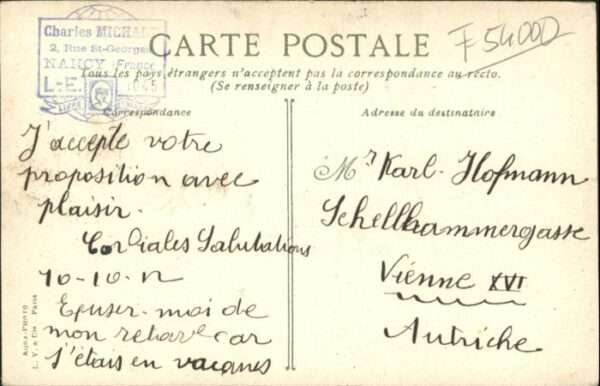 Charles MICHAL
2, Rue St-Georges
NANCY (France)
L.-E. 1045
CARTE POSTALE
F 54000
Tous les pays étrangers n'acceptent pas la correspondance au recto.
(Se renseigner à la poste)
Correspondance
Adresse du destinataire
J'accepte votre
proposition avec
plaisir.
Cordiales Salutations
10-10-12
Exuser-moi de
mon retard car
j'étais en vacances
Mr Karl. Hofmann
Schellhammergasse
Vienne XVI
Autriche
AQUA-PHOTO
L. V. & Cie Paris